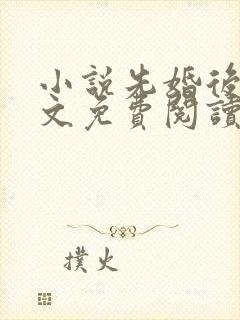 小說先婚後
文免費閱讀
撲火